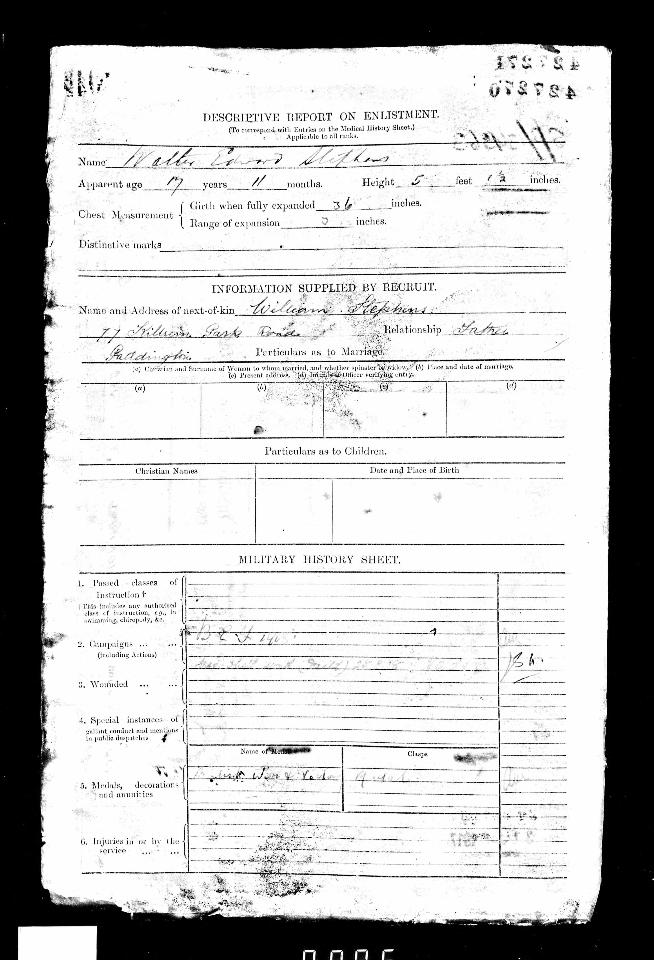 427271
427270
DESCRIPTIVE REPORT ON ENLISTMENT.
(To correspond with Entries on the Medical History Sheet.)
Applicable to all ranks.
Name Walter Edward Stephens
Apparent age 17 years 11 months. Height 5 feet 1½ inches.
Chest Measurement { Girth when fully expanded 36 inches.
Range of expansion 3 inches.
Distinctive marks
INFORMATION SUPPLIED BY RECRUIT.
Name and Address of next-of-kin William Stephens
77 Park Road Relationship Father
Paddington Particulars as to Marriage.
(a) Christian and Surname of Woman to whom married, and whether spinster or widow. (b) Place and date of marriage.
(c) Present address. (d) Initials of Officer verifying entry.
(a) (b) (c) (d)
Particulars as to Children.
Christian Names Date and Place of Birth
MILITARY HISTORY SHEET.
1. Passed classes of
Instruction
(This includes any authorised
class of instruction, e.g., in
swimming, chiropody, &c.
2. Campaigns ... ...
(including Actions)
B E F
3. Wounded ... ...
4. Special instances of
gallant conduct and mentions
in public despatches
Name of Medal Clasps
5. Medals, decorations
and annuities
War &
6. Injuries in or by the
service ... ...